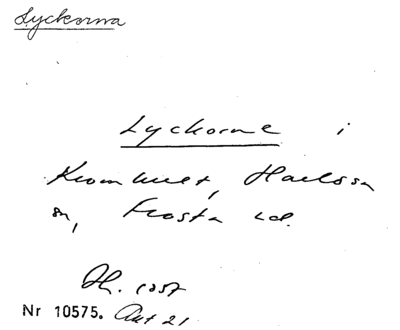 Lyckorna
Lyckorne i
Kromhult, Hallssn
sn, Frosta hd.
Dh. 1957
Nr 10575. Akt 21